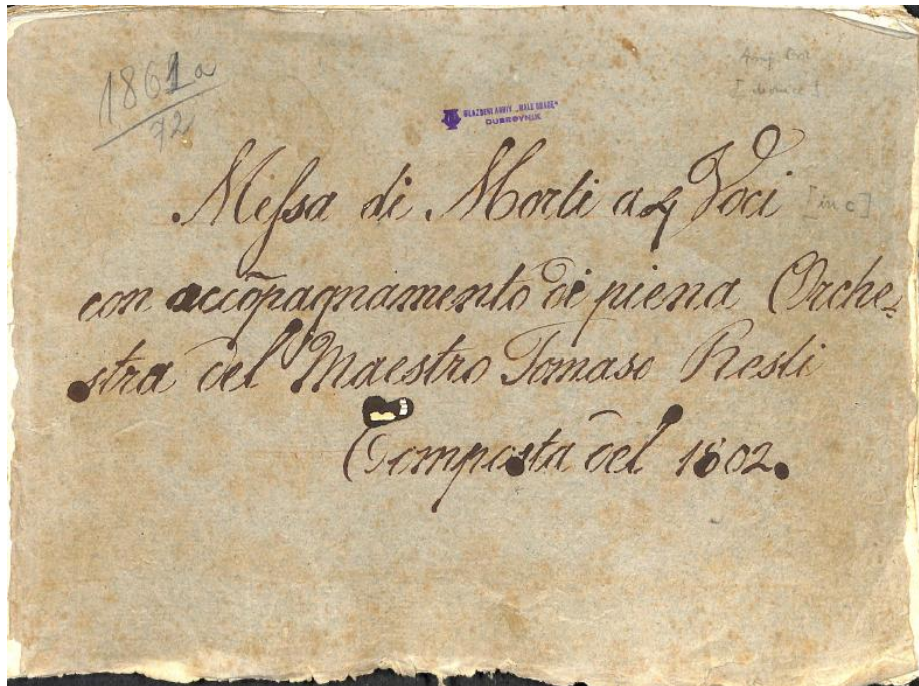 1861a
72
GLAZBENI ARHIV „MALE BRAĆE“
DUBROVNIK
Meſsa di Morti a 4 Voci [in c]
con accõpagnamento di piena Orche-
stra del Maestro Tomaso Resti
Composta del 1802.